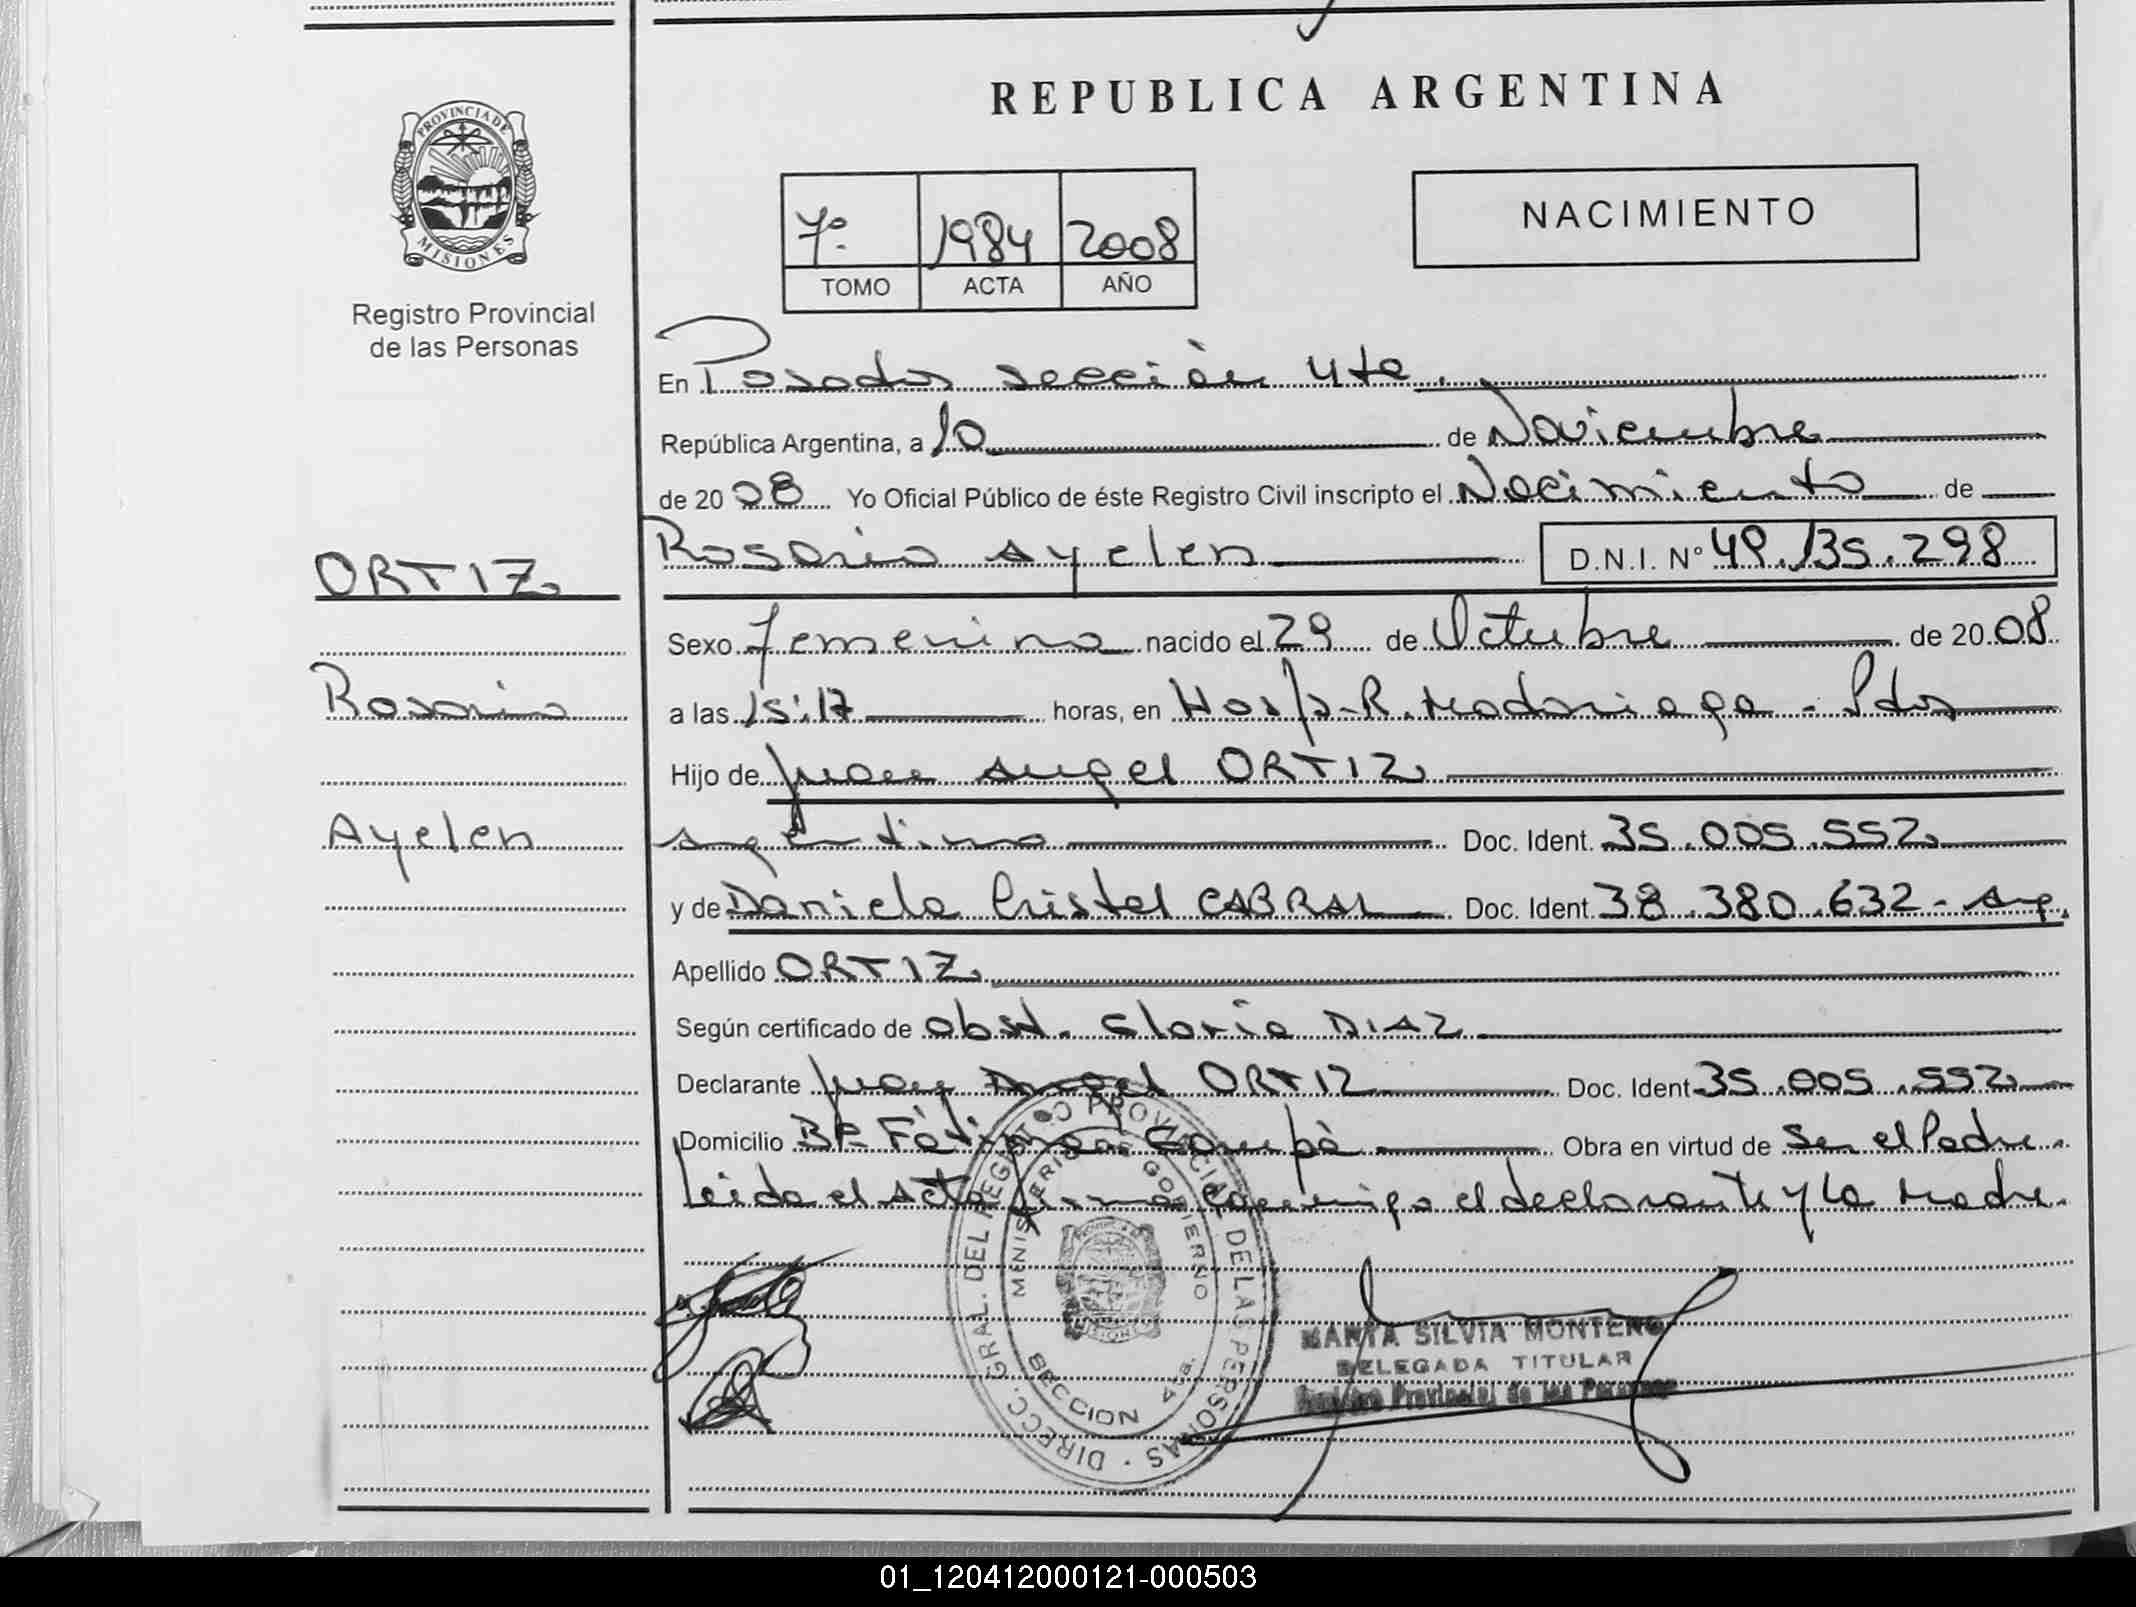 REPUBLICA ARGENTINA
PROVINCIA DE
MISIONES
Registro Provincial
de las Personas
7º 1984 2008
TOMO ACTA AÑO
NACIMIENTO
En Posadas sección 4ta.
República Argentina, a 10 de Noviembre
de 2008 Yo Oficial Público de éste Registro Civil inscripto el Nacimiento de
Rosario Ayelen D.N.I. Nº 49.135.298
ORTIZ
Sexo Femenino nacido el 29 de Octubre de 2008
Rosario
a las 15:17 horas, en Hosp. R. Madariaga - Pdas
Hijo de Juan Angel ORTIZ
Ayelen
argentino Doc. Ident. 35.005.552
y de Daniela Cristel CABRAL Doc. Ident. 38.380.632 - Arg.
Apellido ORTIZ
Según certificado de obst. Gloria DIAZ
Declarante Juan Angel ORTIZ Doc. Ident 35.005.552
Domicilio Bº Fátima Garupá Obra en virtud de Ser el Padre.
Leída el Acta firma conmigo el declarante y la Madre.
DIRECC. GRAL. DEL REGISTRO PROVINCIAL DE LAS PERSONAS
MINISTERIO DE GOBIERNO
SECCION 4ta.
MARTA SILVIA MONTERO
DELEGADA TITULAR
Registro Provincial de las Personas
01_120412000121-000503